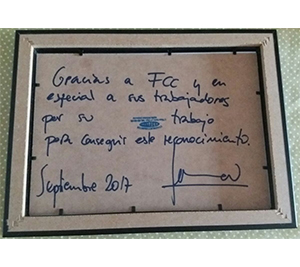 Gracias a FCC y en
especial a sus trabajadores
por su trabajo
para conseguir este reconocimiento.
Septiembre 2017